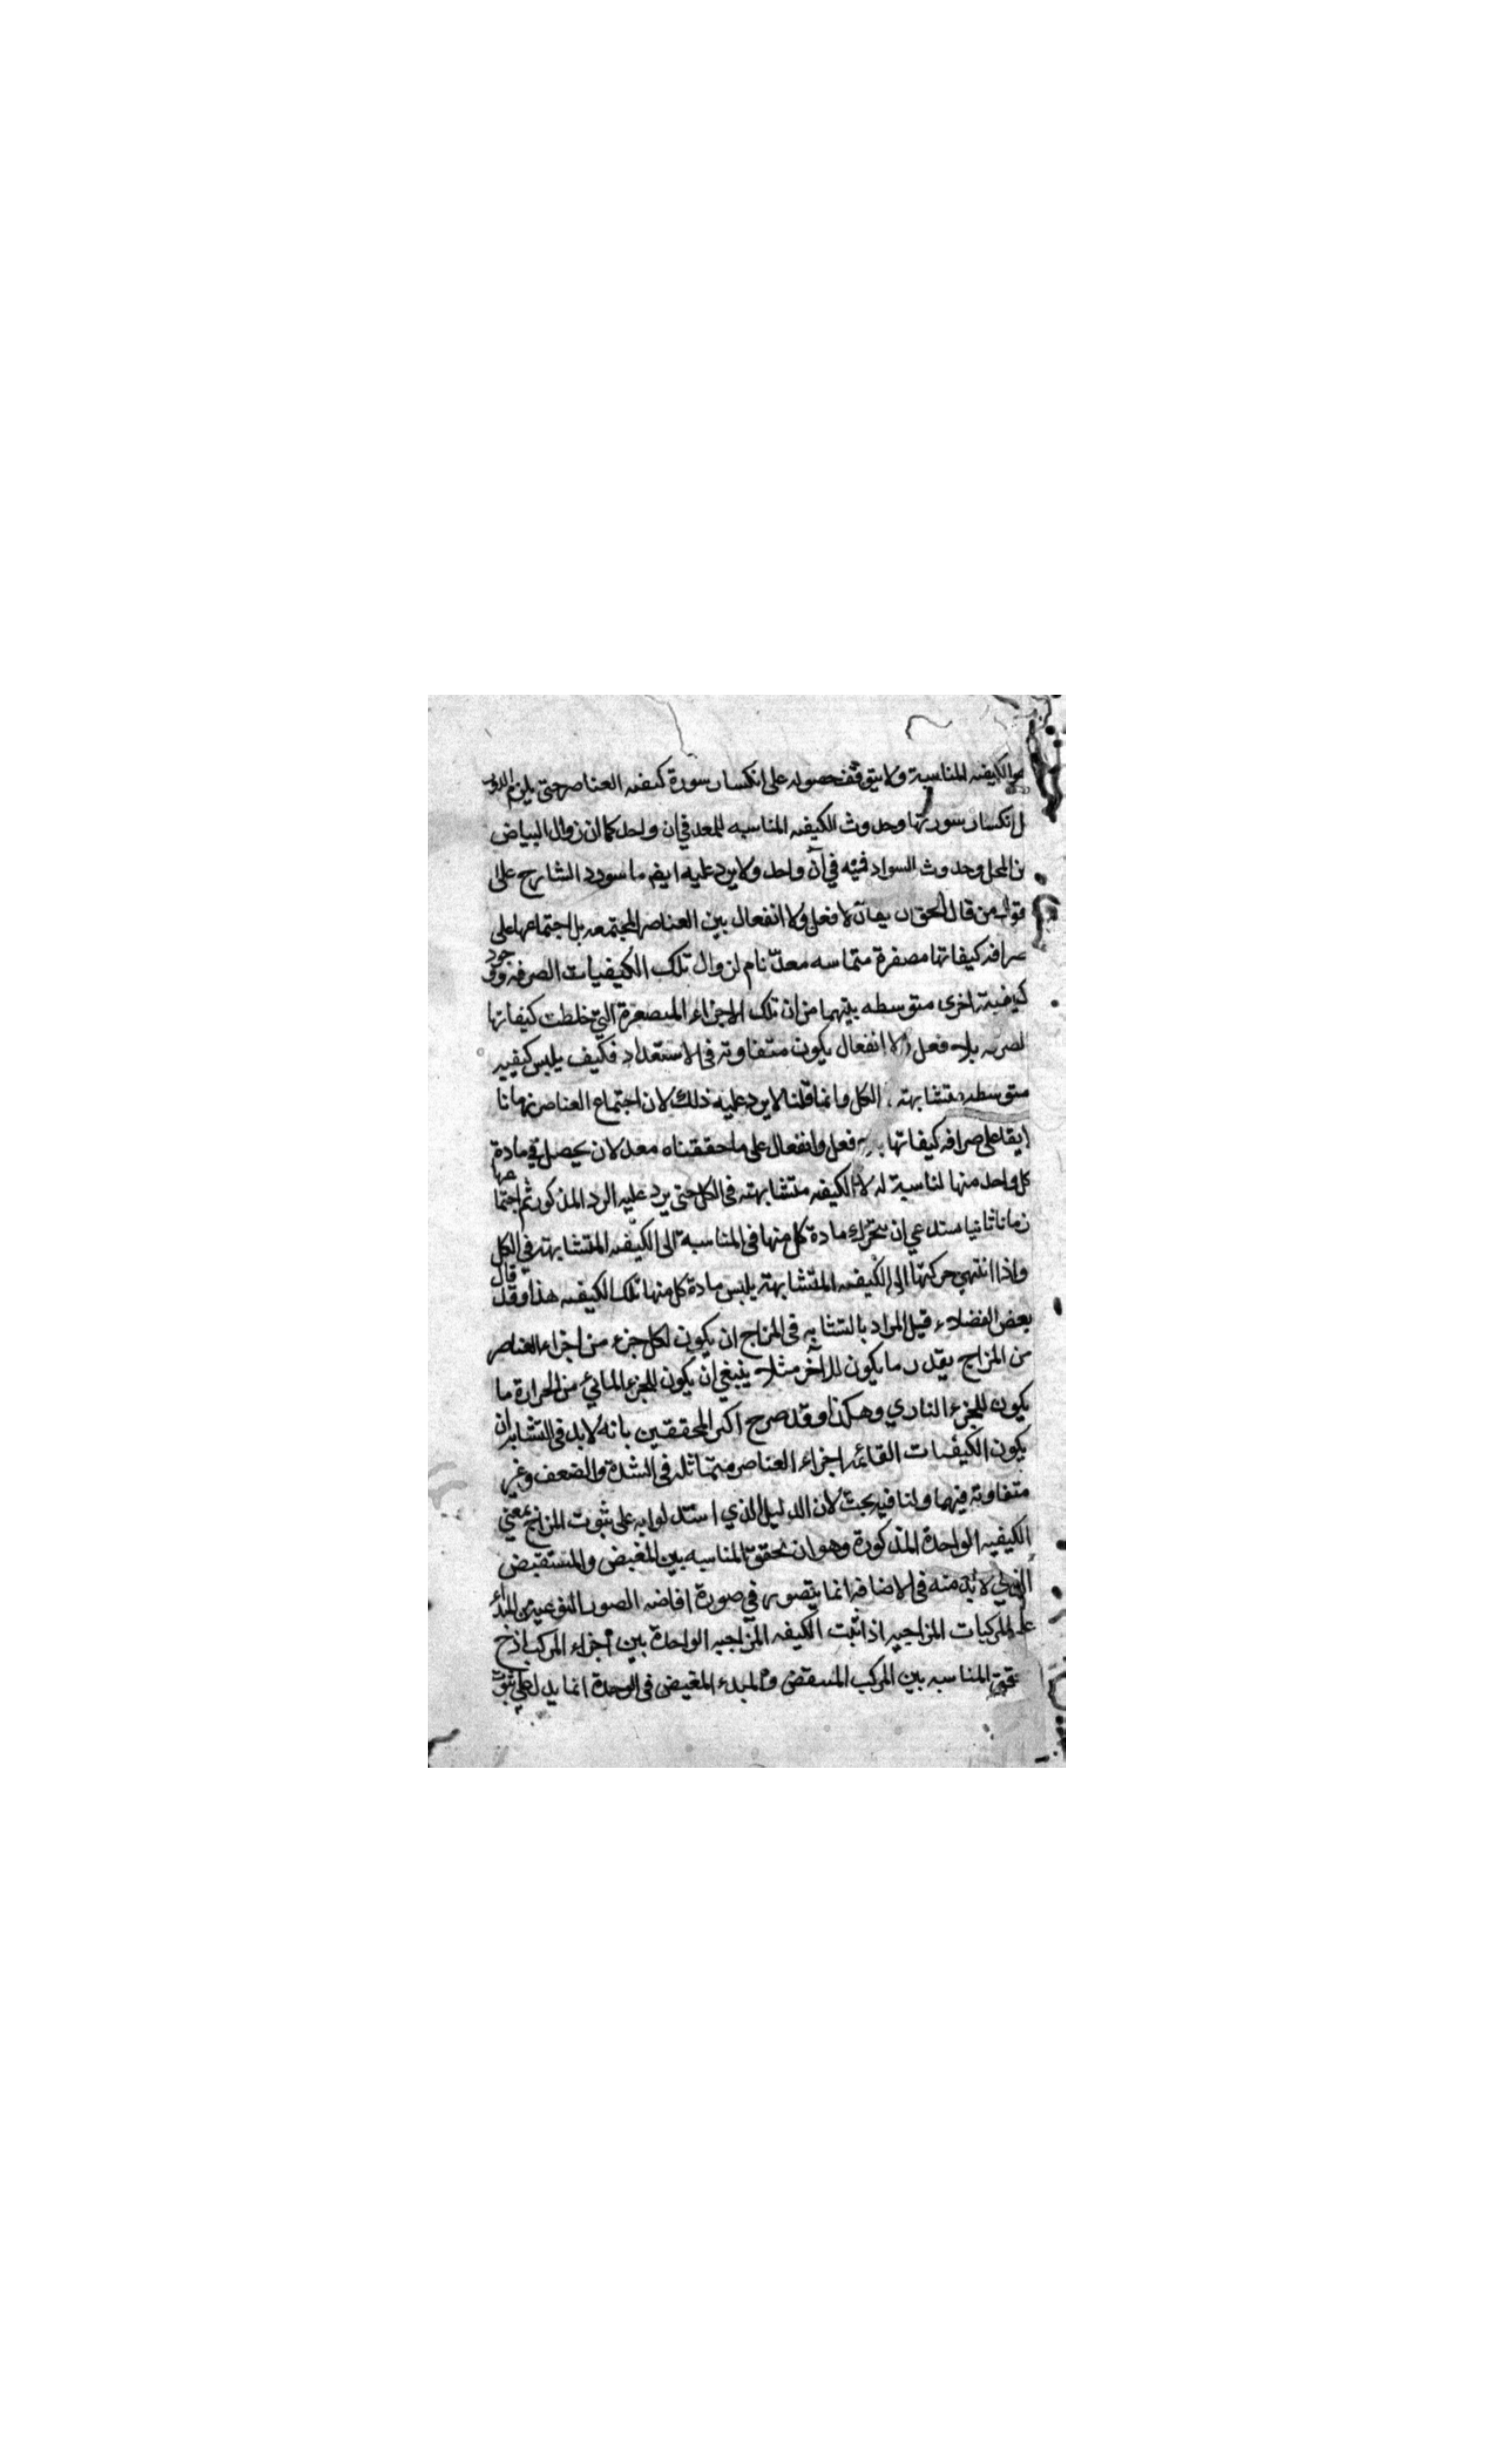 الكيفيه المناسبة ولا يتوقف حصوله على انكسار سورة كيفيه العناصر حتى يلزم الدور
انكسار سورتها وحدوث الكيفيه المناسبه للمعد في ان واحد كما ان زوال البياض
ن المحل وحدوث السواد فيه في آن واحد ولا يرد عليه ايضا ما سورد الشارح على
قول من قال الحق ان يقال لا فعل ولا انفعال بين العناصر المجتمعه بل اجتماعها على
صرافه كيفاتها مصغرة متماسه معد تام لزوال تلك الكيفيات الصرفه ووجود
كيفية اخرى متوسطه بينهما من ان تلك الاجزاء المصغرة التي خلطت كيفاتها
بلا فعل ولا انفعال يكون متفاوته في الاستعداد فكيف يلبس كيفيه
متوسطه متشابهته الكل وما نما قلنا لا يرد عليه ذلك لان اجتماع العناصر زمانا
على صرافه كيفاتها فعل وانفعال على ما حققناه معد لان يحصل في مادة
كل واحد منها لناسبة له لا الكيفه متشابهته في الكل حتى يرد عليه الرد المذكور ثم اجتماعها
زمانا ثانيا مستدعي ان يتحرك مادة كل منها في المناسبة الى الكيفه المتشابهته في الكل
واذا انتهي حركتها الى الكيفه المتشابهته يلبس مادة كل منها تلك الكيفه هذا وقد قال
بعض الفضلاء قيل المراد بالتشابه في المزاج ان يكون لكل جزء من اجزاء العناصر
من المزاج بقدر ما يكون للآخر مثلا ينبغي ان يكون للجزء المائي من الحرارة ما
يكون للجزء الناري وهكذا وقد صرح اكثر المحققين بانه لا بد في التشابه ان
يكون الكيفيات القائمه اجزاء العناصر متماثله في الشدة والضعف وغير
متفاوته فيها ولنا فيه بحث لان الدليل الذي استدلوا به على ثبوت المزاج بمعني
الكيفيه الواحدة المذكورة وهو ان تحقق المناسبه بين المفيض والمستفيض
الذي لا بد منه في الاضافه انما يتصور في صورة افاضه الصور النوعيه من المبدأ
على المركبات المزاجيه اذا ثبت الكيفه المزاجيه الواحدة بين اجزاء المركب اذ ح
تحقق المناسبه بين المركب المستفيض والمبدء المفيض في الوحدة انما يدل على ثبوت